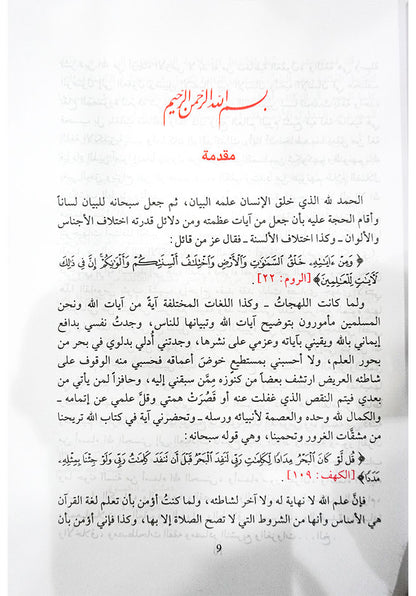 بسم الله الرحمن الرحيم
مقدمة
الحمد لله الذي خلق الإنسان علمه البيان، ثم جعل سبحانه للبيان لساناً
وأقام الحجة عليه بأن جعل من آيات عظمته ومن دلائل قدرته اختلاف الأجناس
والألوان ـ وكذا اختلاف الألسنة ـ فقال عز من قائل:
﴿ وَمِنْ ءَايَٰتِهِۦ خَلْقُ ٱلسَّمَٰوَٰتِ وَٱلْأَرْضِ وَٱخْتِلَٰفُ أَلْسِنَتِكُمْ وَأَلْوَٰنِكُمْ إِنَّ فِى ذَٰلِكَ
لَءَايَٰتٍ لِّلْعَٰلِمِينَ ﴾ [الروم: ٢٢].
ولما كانت اللهجاتُ ـ وكذا اللغات المختلفة آيةً من آيات الله ونحن
المسلمين مأمورون بتوضيح آيات الله وتبيانها للناس، وجدتُ نفسي بدافع
إيماني بالله ويقيني بآياته وعزمي على نشرها، وجدتني أُدلي بدلوي في بحر من
بحور العلم، ولا أحسبني بمستطيع خوضَ أعماقه فحسبي منه الوقوف على
شاطئه العريض ارتشف بعضاً من كنوزه ممَّن سبقني إليه، وحافزاً لمن يأتي من
بعدي فيتم النقص الذي غفلت عنه أو قَصُرَتْ همتي وقلَّ علمي عن إتمامه ـ
والكمال لله وحده والعصمة لأنبيائه ورسله ـ وتحضرني آية في كتاب الله تريحنا
من مشقَّات الغرور وتحمينا، وهي قوله سبحانه:
﴿ قُل لَّوْ كَانَ ٱلْبَحْرُ مِدَادًا لِّكَلِمَٰتِ رَبِّى لَنَفِدَ ٱلْبَحْرُ قَبْلَ أَن تَنفَدَ كَلِمَٰتُ رَبِّى وَلَوْ جِئْنَا بِمِثْلِهِۦ
مَدَدًا ﴾ [الكهف: ١٠٩].
فإنَّ علم الله لا نهاية له ولا آخر لشاطئه، ولما كنتُ أؤمن بأن تعلم لغة القرآن
هي الأساس وأنها من الشروط التي لا تصح الصلاة إلا بها، وكذا فإني أؤمن بأن
9